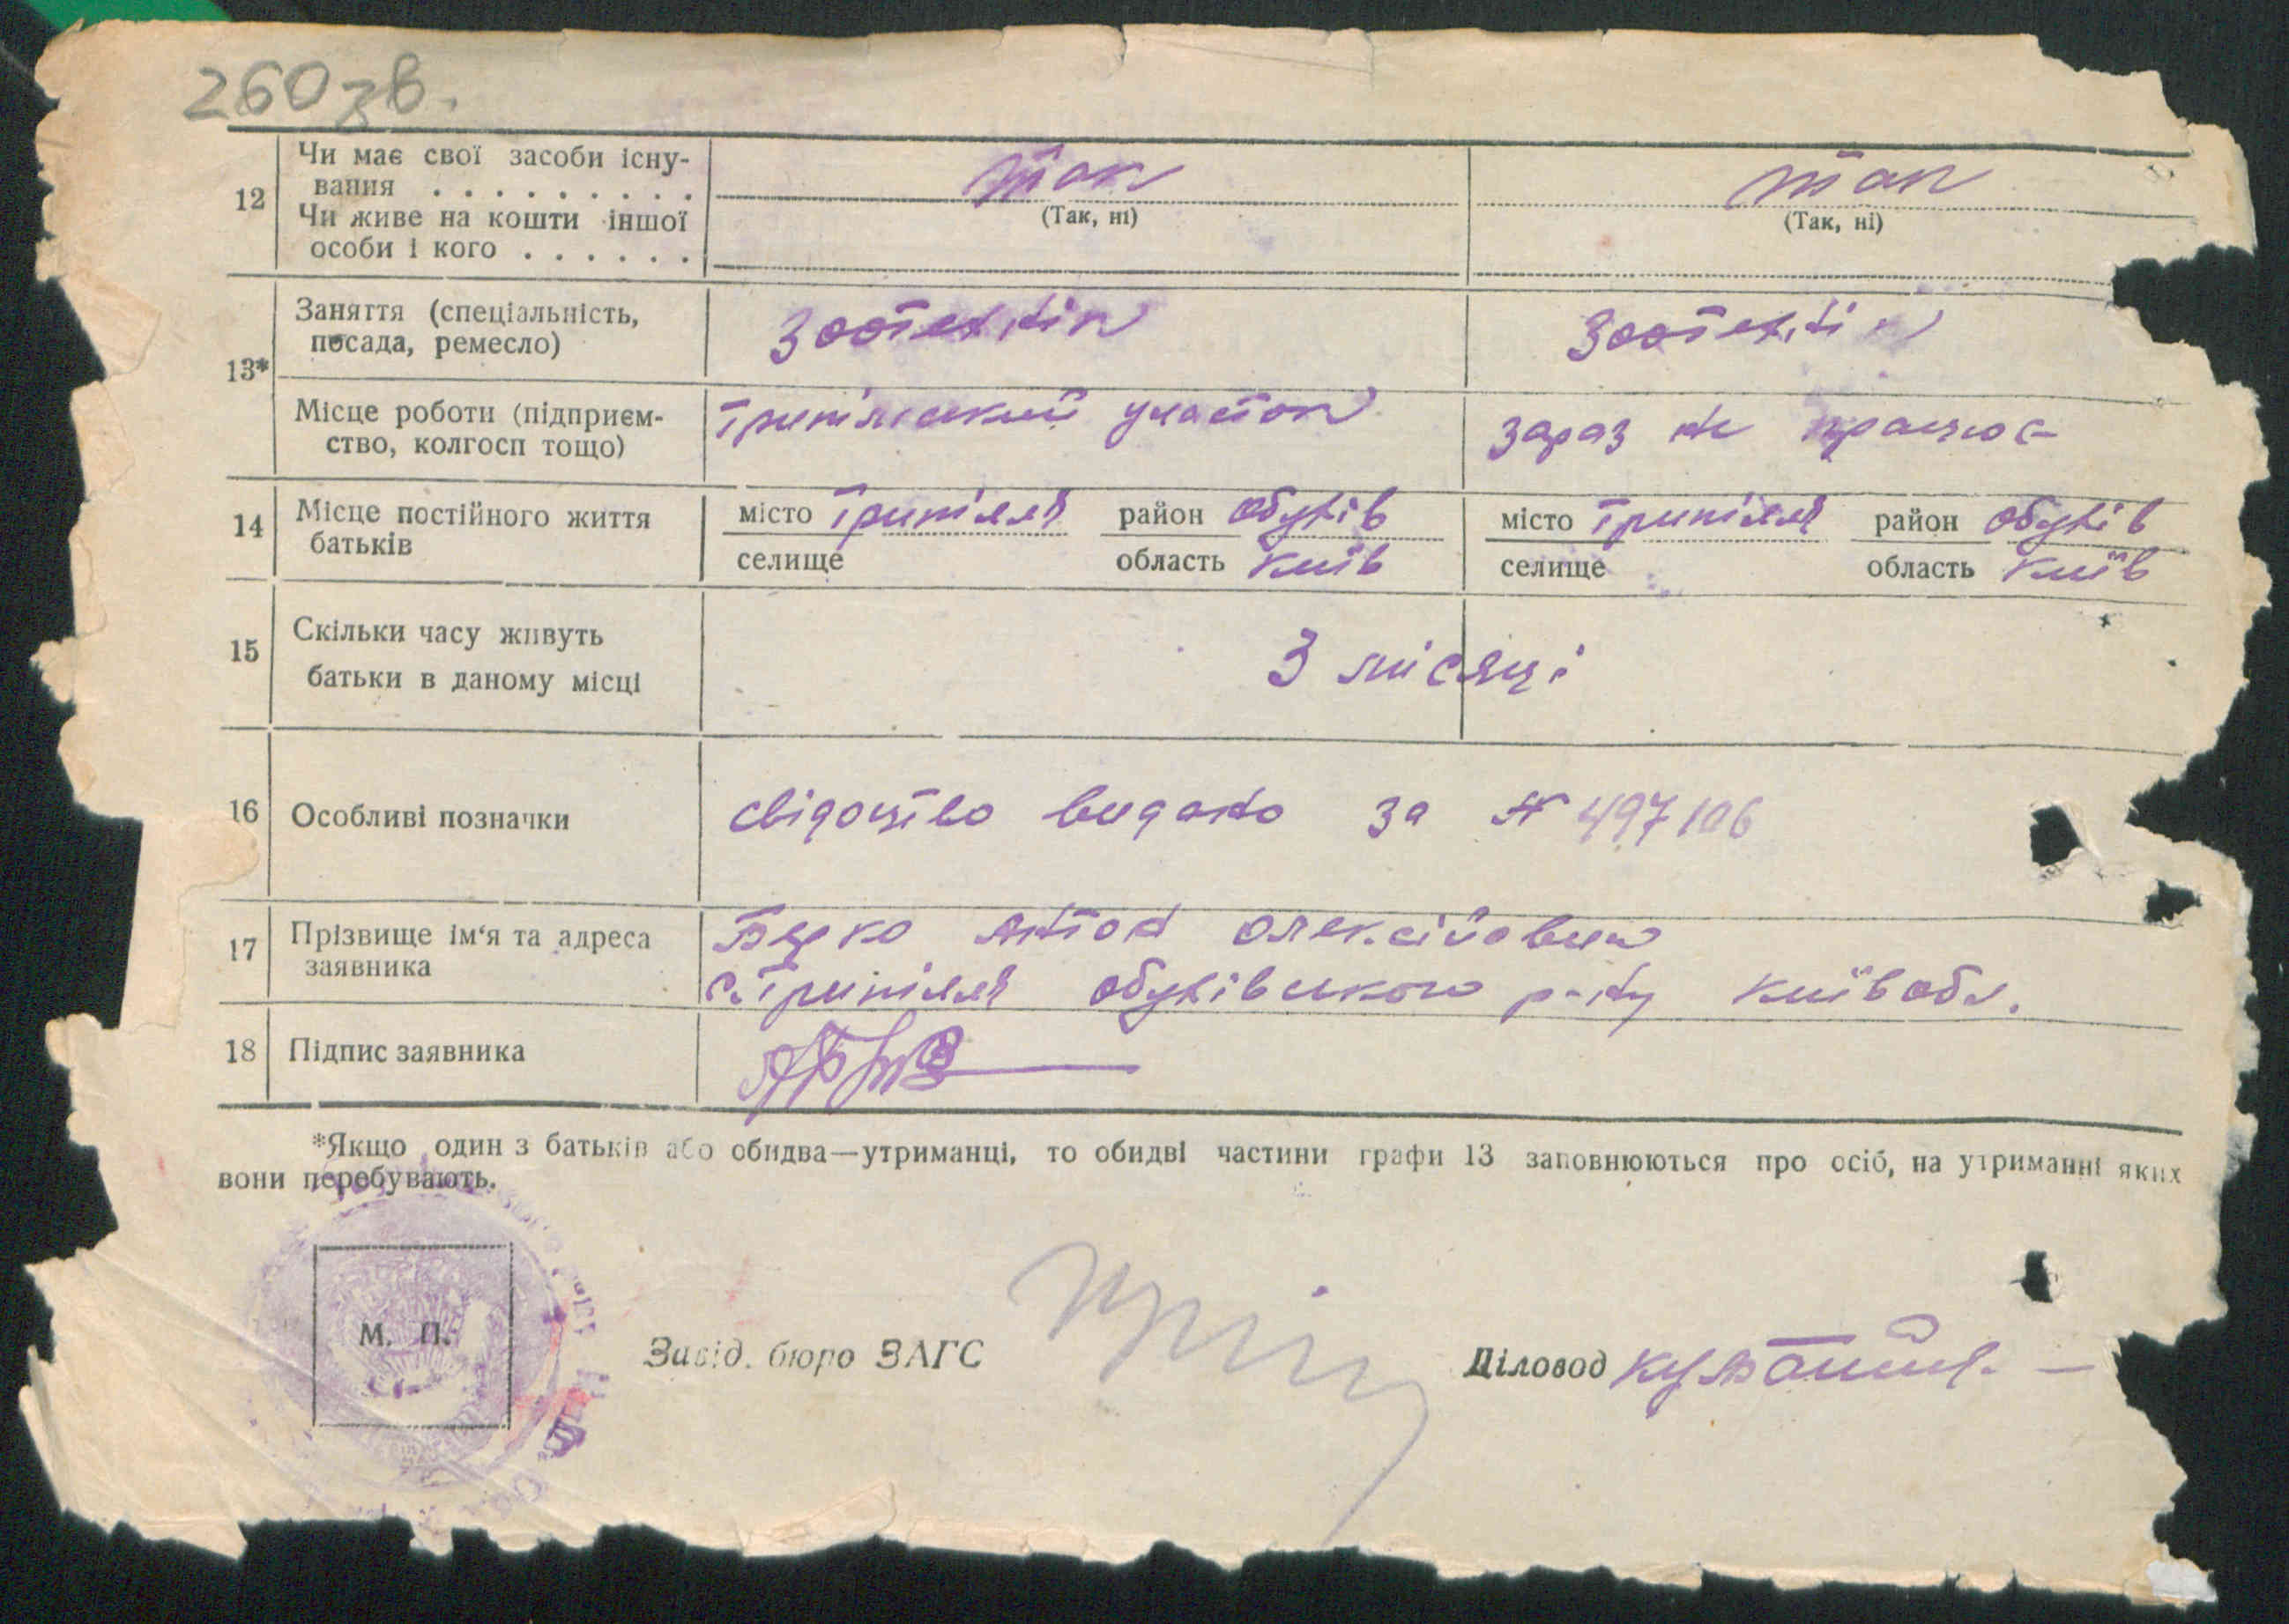 260 зв.
12 Чи має свої засоби існу-
вання . . . . . . . . . так так
(Так, ні) (Так, ні)
Чи живе на кошти іншої
особи і кого . . . . . .
13* Заняття (спеціальність,
посада, ремесло) зоотехнік зоотехнік
Місце роботи (підприєм-
ство, колгосп тощо) Трипільський участок зараз не працює
14 Місце постійного життя
батьків місто Трипілля район Обухів місто Трипілля район Обухів
селище область Київ селище область Київ
15 Скільки часу живуть
батьки в даному місці 3 місяці
16 Особливі позначки свідоцтво видано за № 497106
17 Прізвище ім‘я та адреса
заявника Буцко Антон Олексійович
с. Трипілля Обухівського р-ну Київ обл.
18 Підпис заявника
*Якщо один з батьків або обидва—утриманці, то обидві частини графи 13 заповнюються про осіб, на утриманні яких
вони перебувають.
М. П.
Завід. бюро ЗАГС
Діловод